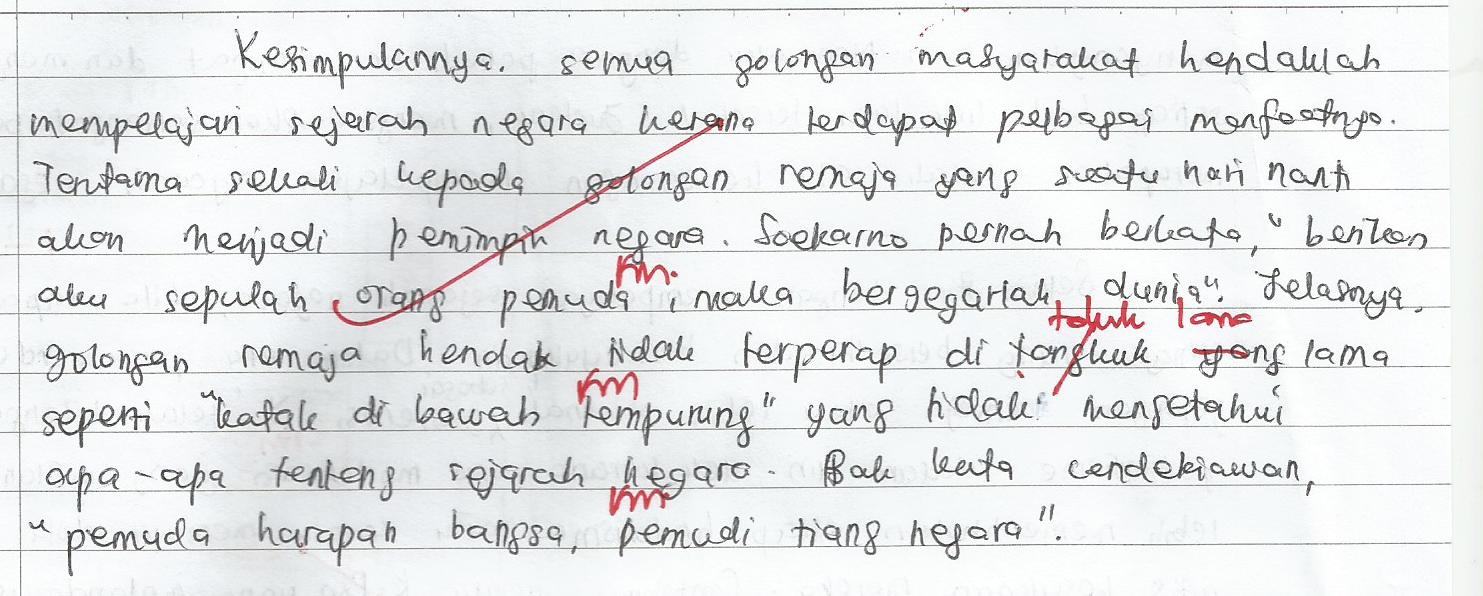 Kesimpulannya. semua golongan masyarakat hendaklah
mempelajari sejarah negara kerana terdapat pelbagai manfaatnya.
Terutama sekali kepada golongan remaja yang suatu hari nanti
akan menjadi pemimpin negara. Soekarno pernah berkata, "berikan
rm.
aku sepuluh orang pemuda, maka bergegarlah dunia". Jelasnya,
takuk lama
golongan remaja hendak tidak terperap di tangkuk yang lama
rm
seperti "katak di bawah tempurung" yang tidak mengetahui
apa-apa tenteng sejarah negara. Bak kata cendekiawan,
rm
"pemuda harapan bangsa, pemudi tiang negara".